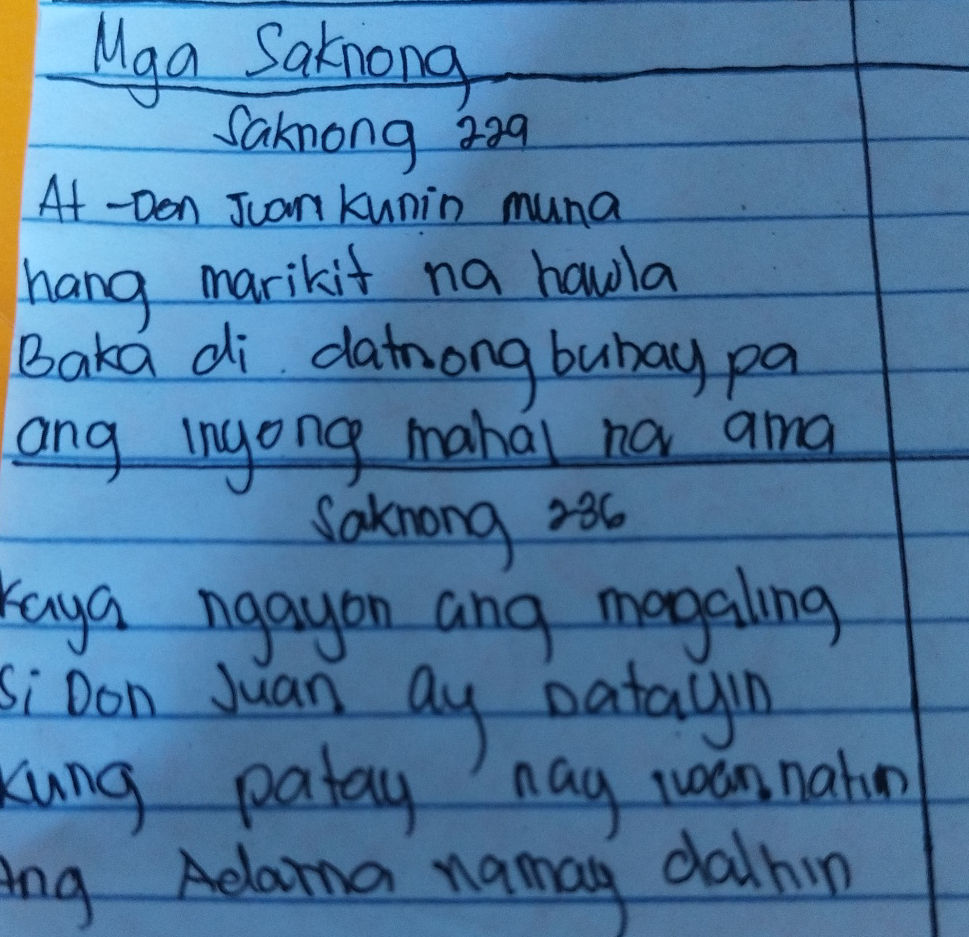 Mga Saknong
Saknong 229
At -Don Juan kunin muna
hang marikit na hawla
Baka di. datnong buhay pa
ang inyong mahal na ama
Saknong 236
Kaya ngayon ang magaling
Si Don Juan ay patayin
Kung patay nay iwan natin
Ang Adarna namay dalhin